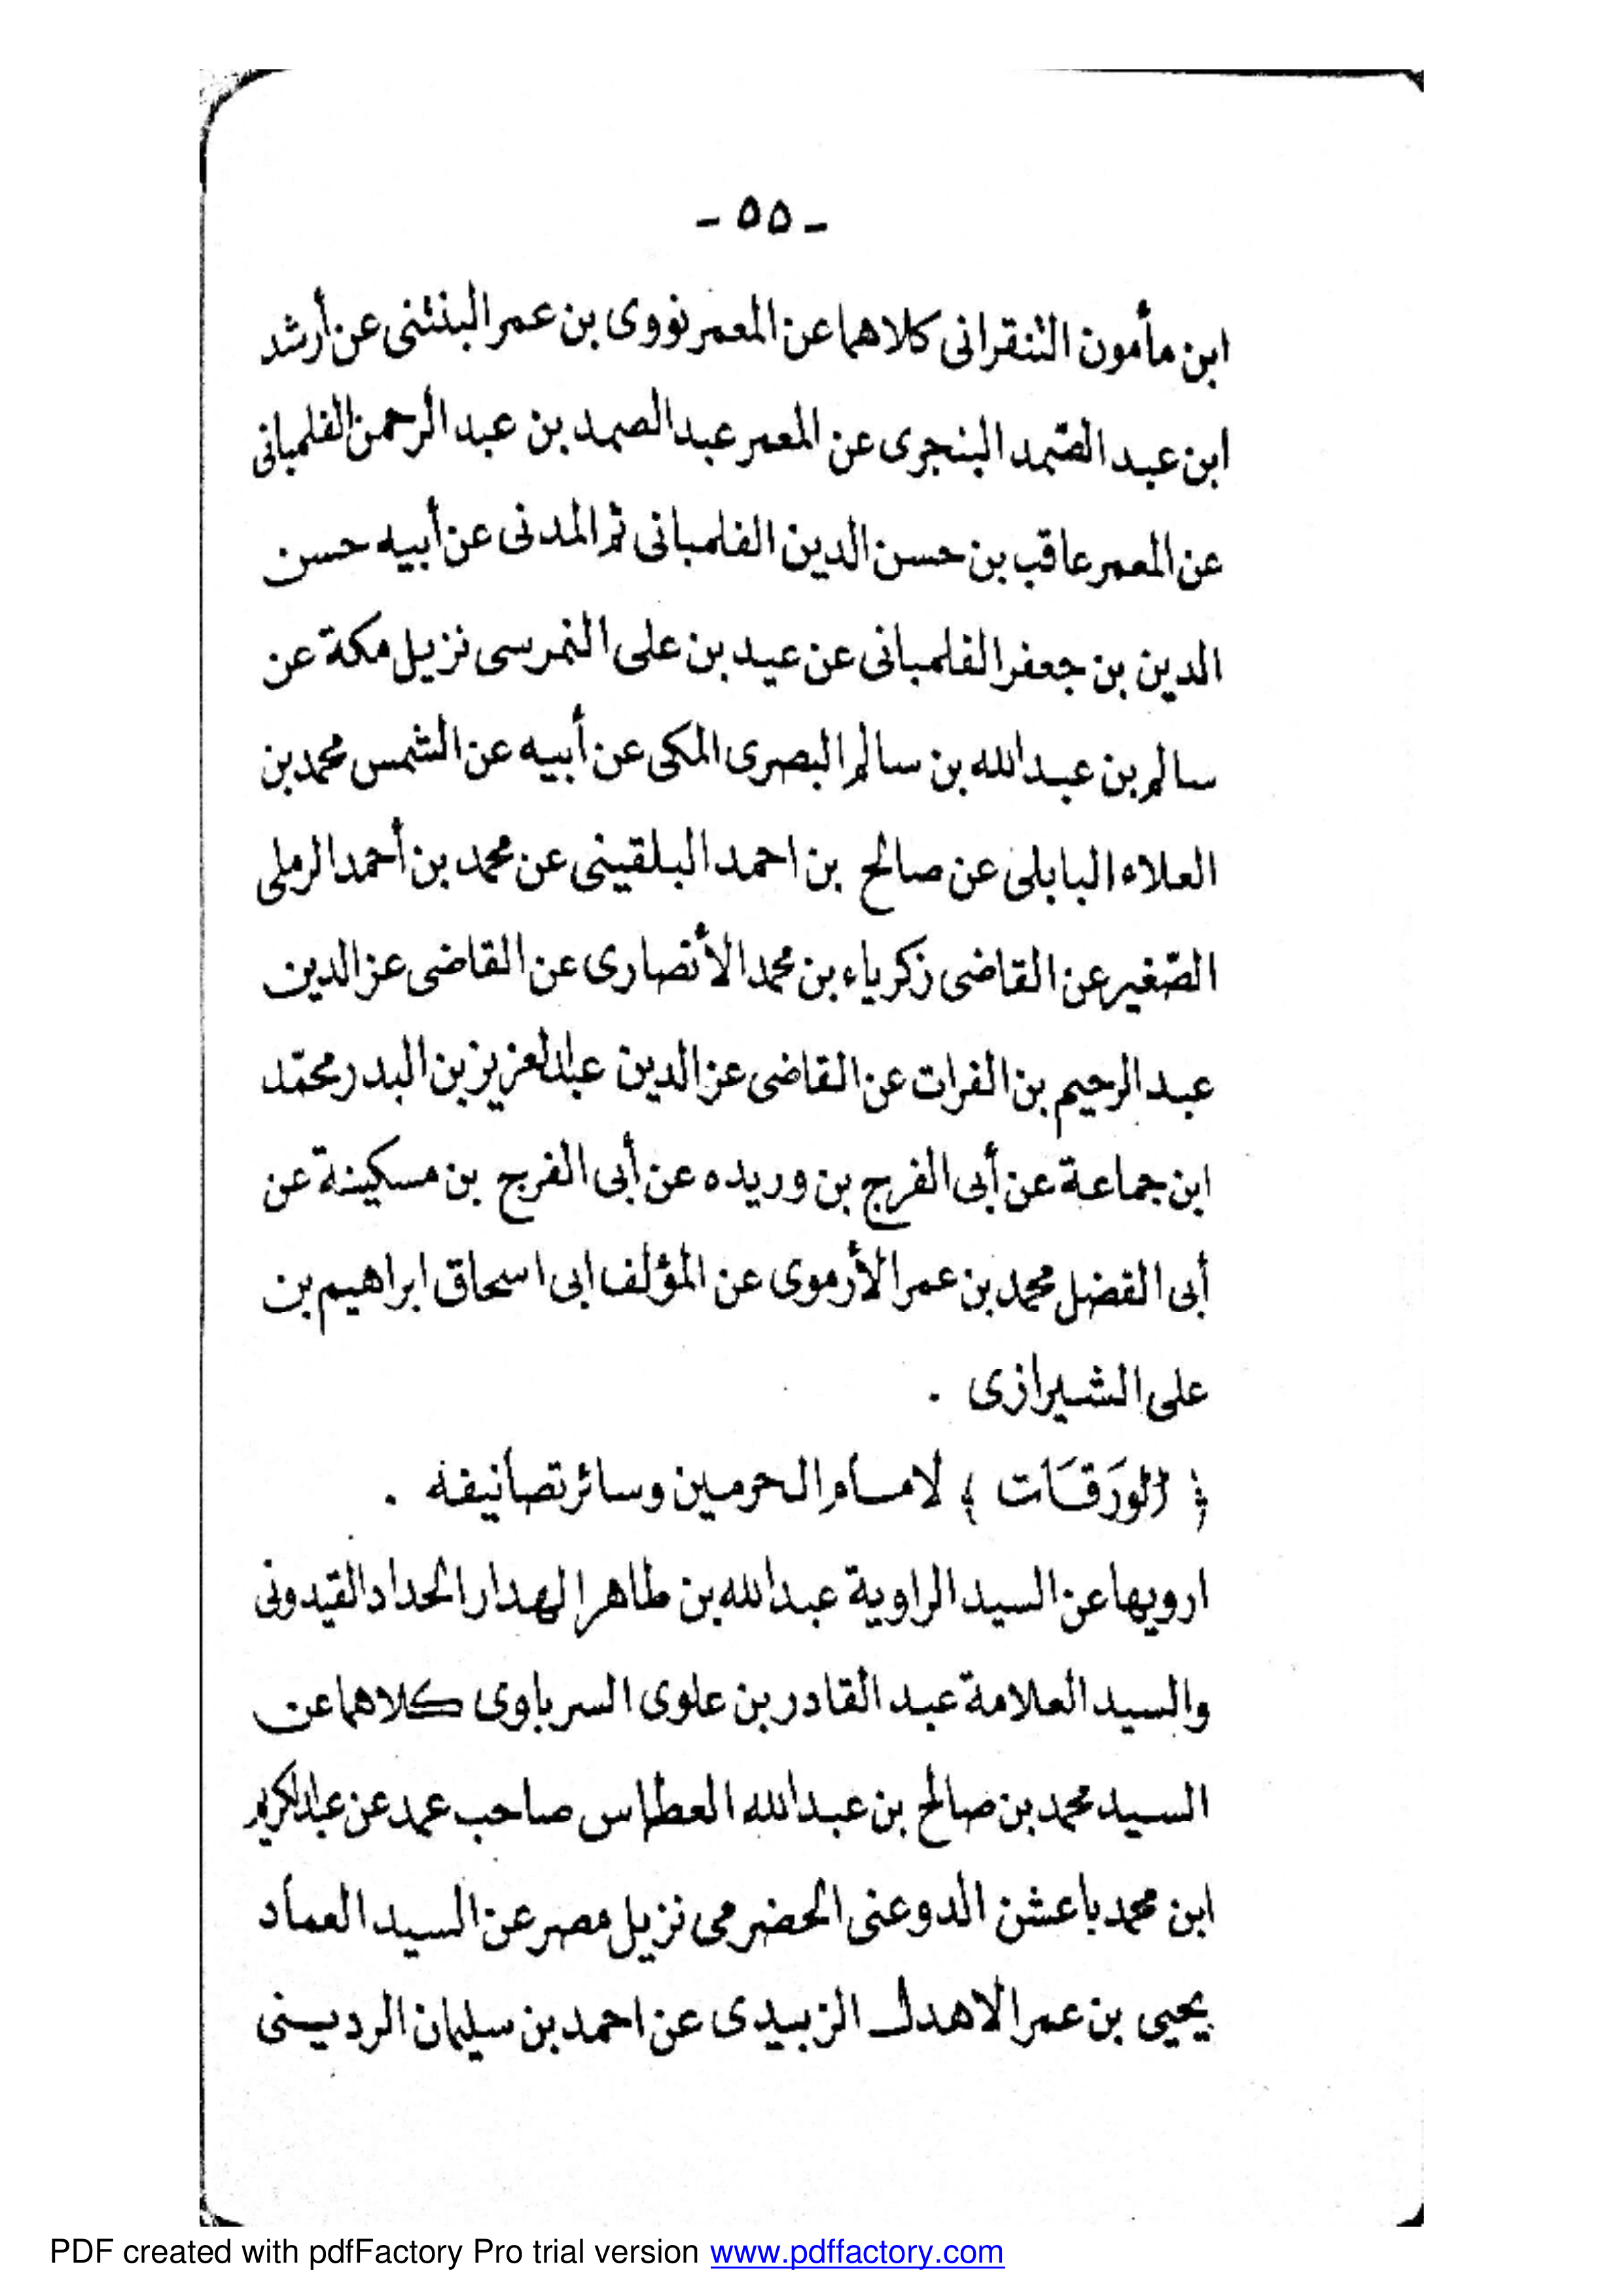 - ٥٥ -
ابن مأمون التنقرانى كلاهما عن المعمر نووى بن عمر البنتنى عن أرشد
ابن عبد الصّمد البنجرى عن المعمر عبد الصمد بن عبد الرحمن الفلمبانى
عن المعمر عاقب بن حسن الدين الفلمبانى ثم المدنى عن أبيه حسن
الدين بن جعفر الفلمبانى عن عيد بن على النمرسى نزيل مكة عن
سالم بن عبد الله بن سالم البصرى المكى عن أبيه عن الشمس محمد بن
العلاء البابلى عن صالح بن احمد البلقينى عن محمد بن أحمد الرملى
الصّغير عن القاضى زكرياء بن محمد الأنصارى عن القاضى عز الدين
عبد الرحيم بن الفرات عن القاضى عز الدين عبد العزيز بن البدر محمّد
ابن جماعة عن أبى الفرج بن وريده عن أبى الفرج بن مسكينة عن
أبى الفضل محمد بن عمر الأرموى عن المؤلف ابى اسحاق ابراهيم بن
على الشيرازى .
﴿ الورَقَات ﴾ لامام الحرمين وسائر تصانيفه .
ارويها عن السيد الراوية عبد الله بن طاهر الهدار الحداد القيدونى
والسيد العلامة عبد القادر بن علوى السرباوى كلاهما عن
السيد محمد بن صالح بن عبد الله العطاس صاحب عمد عن عبد الكريم
ابن محمد باعشن الدوعنى الحضرمى نزيل مصر عن السيد العماد
يحيى بن عمر الاهدل الزبيدى عن احمد بن سليمان الرديسنى
PDF created with pdfFactory Pro trial version www.pdffactory.com